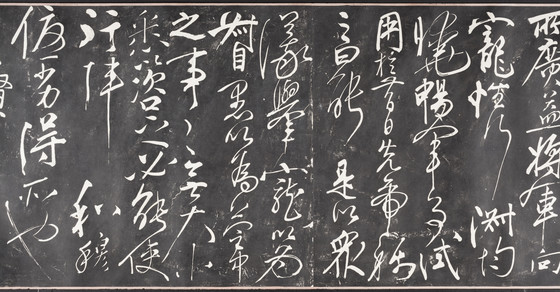 所廣益將軍向
寵性行淑均
曉暢軍事試
用於昔日先帝稱
之曰能是以眾
議舉寵以為
督愚以為營中
之事事無大小
悉以咨之必能使
行陣和穆
優劣得所也
賢